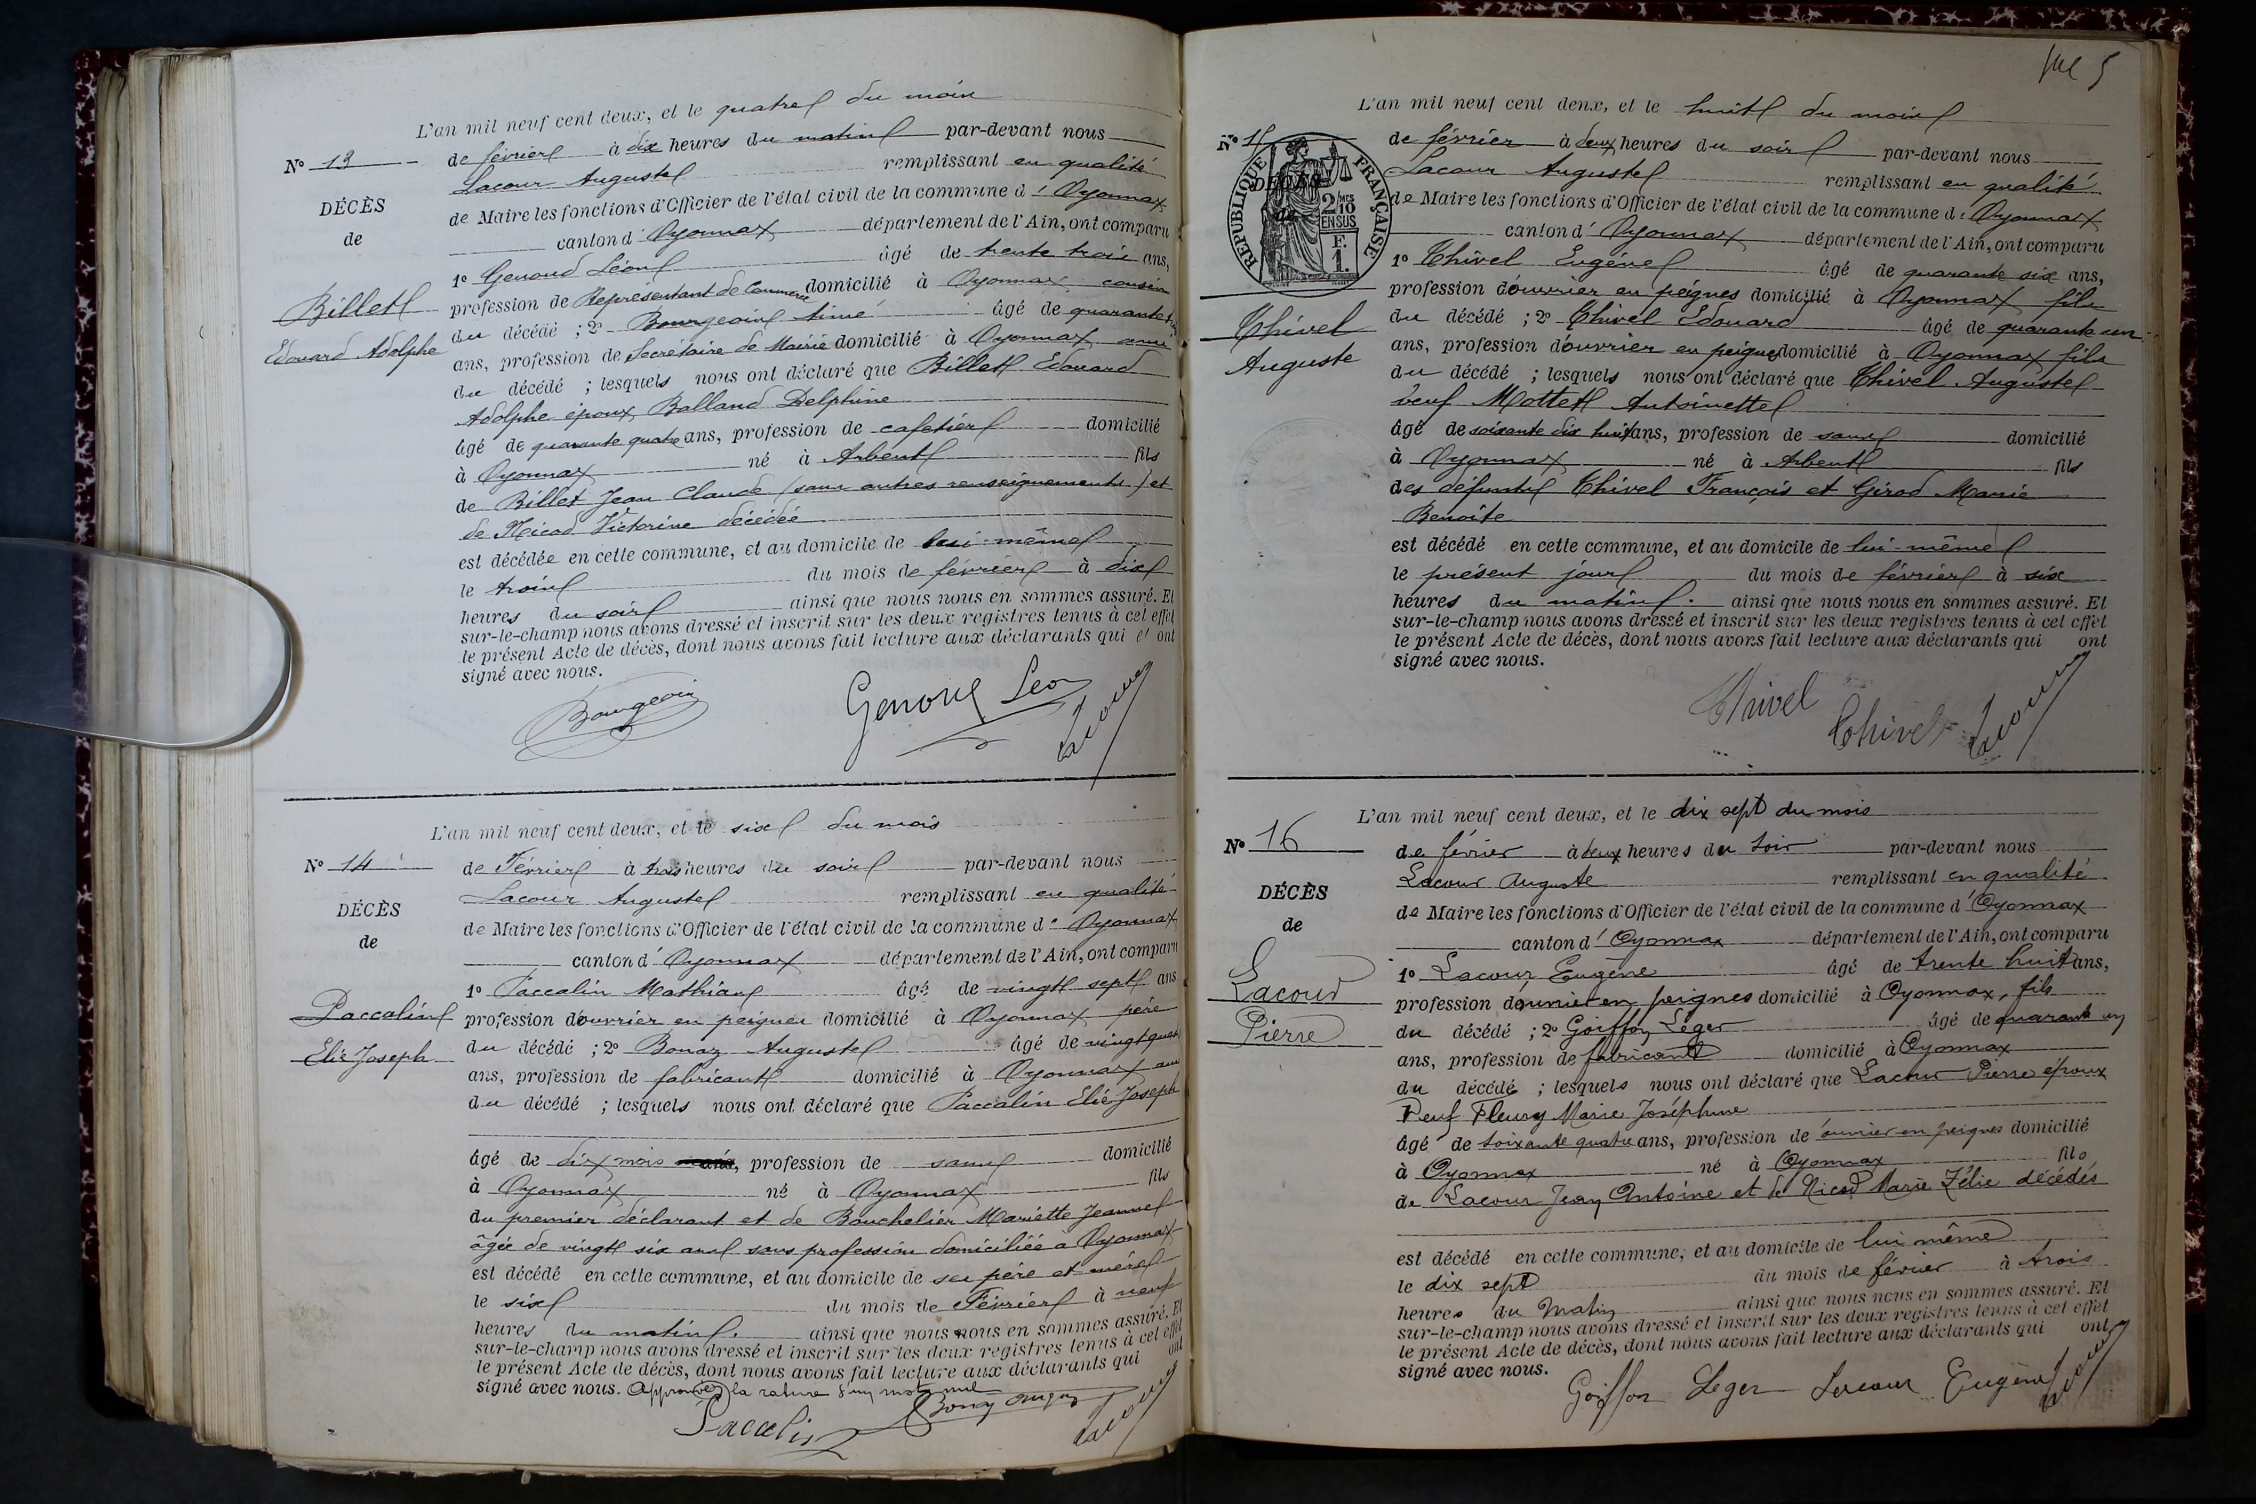 L'an mil neuf cent deux, et le quatre du mois
N° 13
de février à dix heures du matin par-devant nous
Lacour Auguste remplissant en qualité
DÉCÈS
de Maire les fonctions d'Officier de l'état civil de la commune d' Oyonnax
de
canton d' Oyonnax département de l'Ain, ont comparu
1° Genoud Léon âgé de trente trois ans,
Billet
profession de Représentant de Commerce domicilié à Oyonnax, cousin
Edouard Adolphe
du décédé ; 2° Bourgeois Aimé âgé de quarante
ans, profession de Secrétaire de Mairie domicilié à Oyonnax ami
du décédé ; lesquels nous ont déclaré que Billet Edouard
Adolphe époux Balland Delphine
âgé de quarante quatre ans, profession de cafetier domicilié
à Oyonnax né à Arbent fils
de Billet Jean Claude (sans autres renseignements) et
de Nicod Victorine décédée
est décédée en cette commune, et au domicile de lui-même
le trois du mois de février à dix
heures du soir ainsi que nous nous en sommes assuré. Et
sur-le-champ nous avons dressé et inscrit sur les deux registres tenus à cet effet
le présent Acte de décès, dont nous avons fait lecture aux déclarants qui et ont
signé avec nous.
Bourgeois Genoud Léon Lacour
L'an mil neuf cent deux, et le six du mois
N° 14
de Février à trois heures du soir par-devant nous
Lacour Auguste remplissant en qualité
DÉCÈS
de Maire les fonctions d'Officier de l'état civil de la commune d' Oyonnax
de
canton d' Oyonnax département de l'Ain, ont comparu
1° Paccalin Mathias âgé de vingt sept ans
Paccalin
profession d'ouvrier en peignes domicilié à Oyonnax père
Elie Joseph
du décédé ; 2° Bonaz Auguste âgé de vingt quatre
ans, profession de fabricant domicilié à Oyonnax ami
du décédé ; lesquels nous ont déclaré que Paccalin Elie Joseph
âgé de dix mois ans, profession de sans domicilié
à Oyonnax né à Oyonnax fils
du premier déclarant et de Bouchelier Mariette Jeanne
âgée de vingt six ans sans profession domiciliée a Oyonnax
est décédé en cette commune, et au domicile de ses père et mère
le six du mois de Février à neuf
heures du matin. ainsi que nous nous en sommes assuré. Et
sur-le-champ nous avons dressé et inscrit sur les deux registres tenus à cet effet
le présent Acte de décès, dont nous avons fait lecture aux déclarants qui ont
signé avec nous. Approuvée la rature d'un mot nul
Paccalin Bonaz Lacour
L'an mil neuf cent deux, et le huit du mois
N° 15
de février à deux heures du soir par-devant nous
Lacour Auguste remplissant en qualité
DÉCÈS
de
RÉPUBLIQUE FRANÇAISE
2 MES 10
EN SUS
F.
1.
de Maire les fonctions d'Officier de l'état civil de la commune d' Oyonnax
canton d' Oyonnax département de l'Ain, ont comparu
1° Chivel Eugène âgé de quarante six ans,
profession d'ouvrier en peignes domicilié à Oyonnax fils
Chivel
du décédé ; 2° Chivel Edouard âgé de quarante un
Auguste
ans, profession d'ouvrier en peignes domicilié à Oyonnax fils
du décédé ; lesquels nous ont déclaré que Chivel Auguste
veuf Mottet Antoinette
âgé de soixante dix huit ans, profession de sans domicilié
à Oyonnax né à Arbent fils
des défunts Chivel François et Girod Marie
Benoîte
est décédé en cette commune, et au domicile de lui-même
le présent jour du mois de février à six
heures du matin. ainsi que nous nous en sommes assuré. Et
sur-le-champ nous avons dressé et inscrit sur les deux registres tenus à cet effet
le présent Acte de décès, dont nous avons fait lecture aux déclarants qui ont
signé avec nous.
Chivel Chivel Lacour
L'an mil neuf cent deux, et le dix sept du mois
N° 16
de février à deux heures du soir par-devant nous
Lacour Auguste remplissant en qualité
DÉCÈS
de Maire les fonctions d'Officier de l'état civil de la commune d' Oyonnax
de
canton d' Oyonnax département de l'Ain, ont comparu
Lacour
1° Lacour Eugène âgé de trente huit ans,
Pierre
profession d'ouvrier en peignes domicilié à Oyonnax, fils
du décédé ; 2° Goiffon Léger âgé de quarante un
ans, profession de fabricant domicilié à Oyonnax
du décédé ; lesquels nous ont déclaré que Lacour Pierre époux
Veuf Fleury Marie Joséphine
âgé de soixante quatre ans, profession de ouvrier en peignes domicilié
à Oyonnax né à Oyonnax fils
de Lacour Jean Antoine et de Nicod Marie Zélie décédés
est décédé en cette commune, et au domicile de lui même
le dix sept du mois de février à trois
heures du Matin ainsi que nous nous en sommes assuré. Et
sur-le-champ nous avons dressé et inscrit sur les deux registres tenus à cet effet
le présent Acte de décès, dont nous avons fait lecture aux déclarants qui ont
signé avec nous.
Goiffon Leger Lacour Eugène Lacour